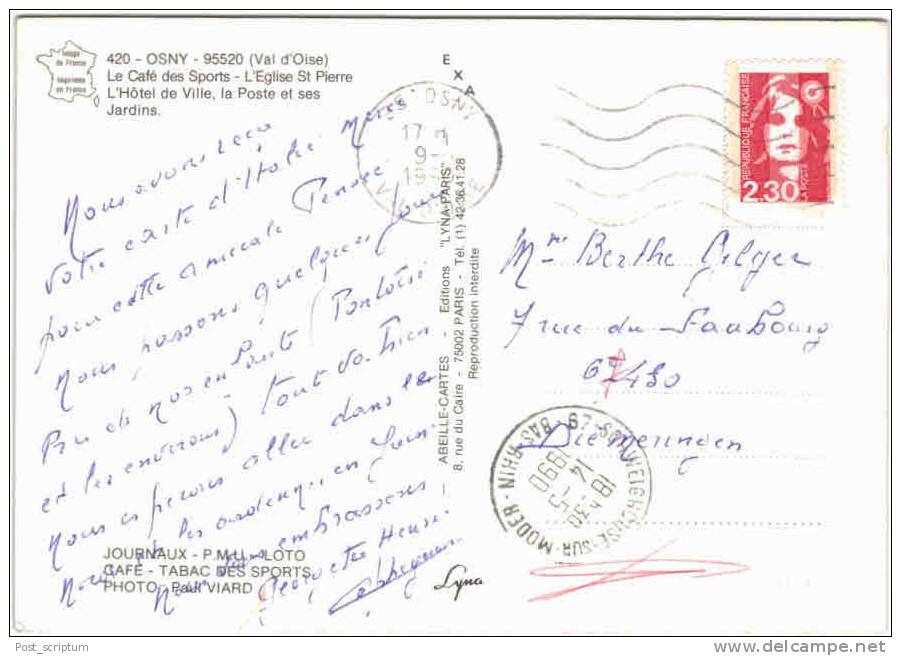 Image
de France
Imprimée
en France
420 - OSNY - 95520 (Val d'Oise)
Le Café des Sports - L'Eglise St Pierre
L'Hôtel de Ville, la Poste et ses
Jardins.
E
X
A
OSNY
17 H
9
REPUBLIQUE FRANÇAISE
2,30
LA POSTE
Nous avons reçu
votre carte d'Italie merci
pour cette amicale Pensée
Nous passons quelques jours
Près de nos enfants (Pontoise
et les environs) tout va bien
nous espérons aller dans les
les ardennes en Juin
Nous vous embrassons
Georgette Henri
JOURNAUX - P.M.U. - LOTO
CAFÉ - TABAC DES SPORTS
PHOTO - Paul VIARD
ABEILLE-CARTES - Editions "LYNA-PARIS"
8, rue du Caire - 75002 PARIS - Tél. (1) 42.36.41.28
Reproduction interdite
Lyna
Mme Berthe Gilger
7 rue du Faubourg
67430
Diemeringen
SCHWEIGHOUSE-SUR-MODER - BAS-RHIN
18 H 30
14 - 5
1990
Post_scriptum
www.delcampe.net